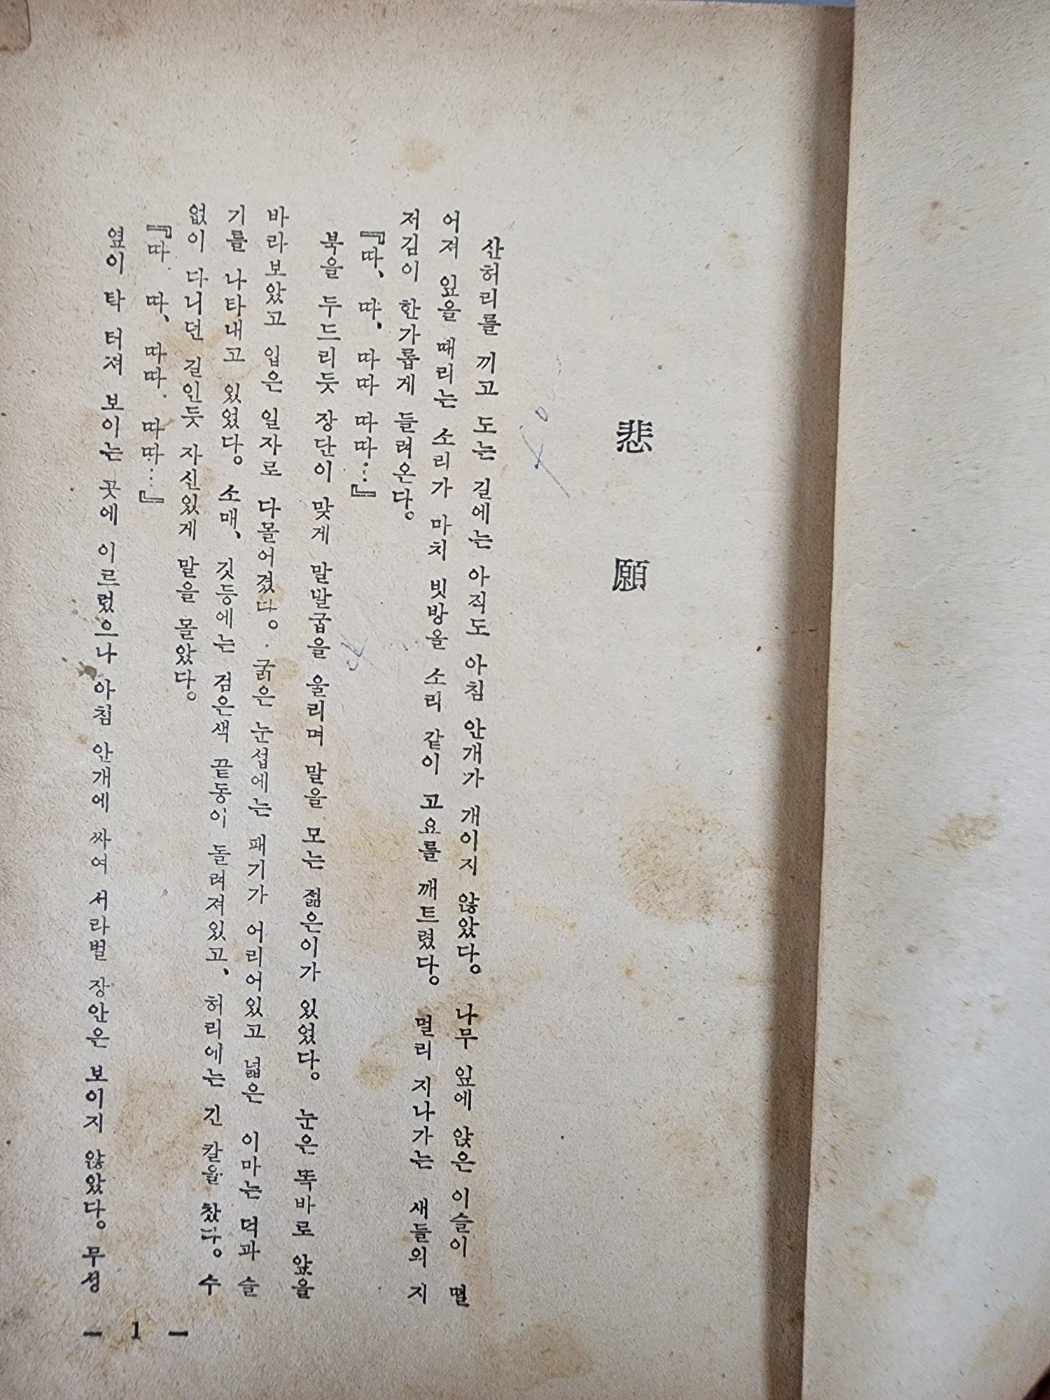 悲願
산허리를 끼고 도는 길에는 아직도 아침 안개가 개이지 않았다。 나무 잎에 앉은 이슬이 떨
어저 잎을 때리는 소리가 마치 빗방울 소리 같이 고요를 깨트렸다。 멀리 지나가는 새들의 지
저김이 한가롭게 들려온다。
『따、 따、 따따 따따…』
북을 두드리듯 장단이 맞게 말발굽을 울리며 말을 모는 젊은이가 있었다。 눈은 똑바로 앞을
바라보았고 입은 일자로 다물어졌다。 굵은 눈섭에는 패기가 어리어있고 넓은 이마는 덕과 슬
기를 나타내고 있었다。 소매、 깃등에는 검은색 끝동이 돌려져있고、 허리에는 긴 칼을 찼다。 수
없이 다니던 길인듯 자신있게 말을 몰았다。
『따、 따、 따따、 따따…』
옆이 탁 터져 보이는 곳에 이르렀으나 아침 안개에 싸여 서라벌 장안은 보이지 않았다。 무성
— 1 —